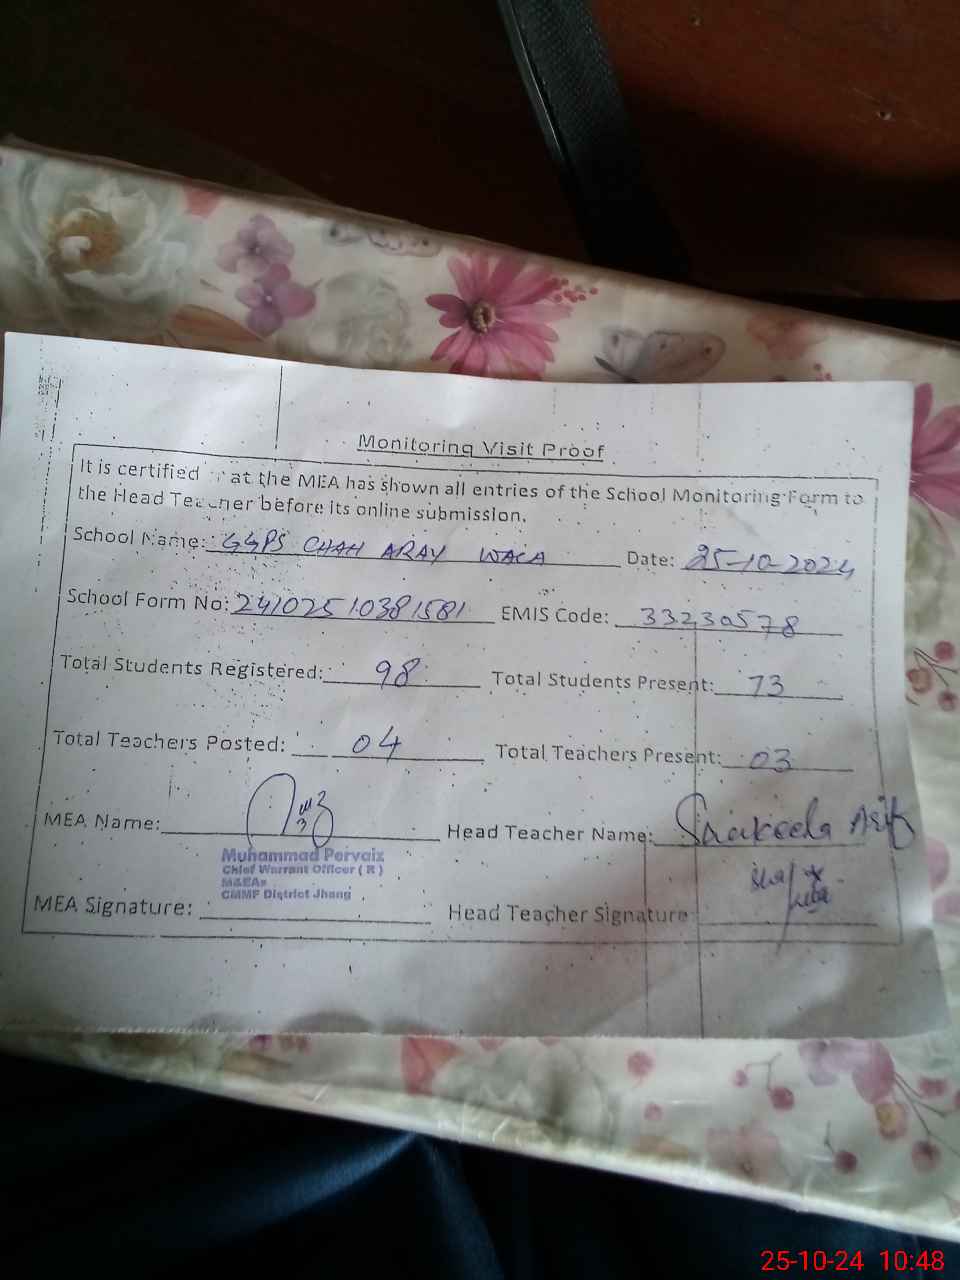 Monitoring Visit Proof
It is certified that the MEA has shown all entries of the School Monitoring Form to
the Head Teacher before its online submission.
School Name: GGPS CHAH ARAY WALA Date: 25-10-2024
School Form No: 24102510381581 EMIS Code: 33230578
Total Students Registered: 98 Total Students Present: 73
Total Teachers Posted: 04 Total Teachers Present: 03
MEA Name: Head Teacher Name: Shakeela Asif
Muhammad Pervaiz
Chief Warrant Officer ( R )
M&EAs
CMMF District Jhang
MEA Signature: Head Teacher Signature
25-10-24 10:48